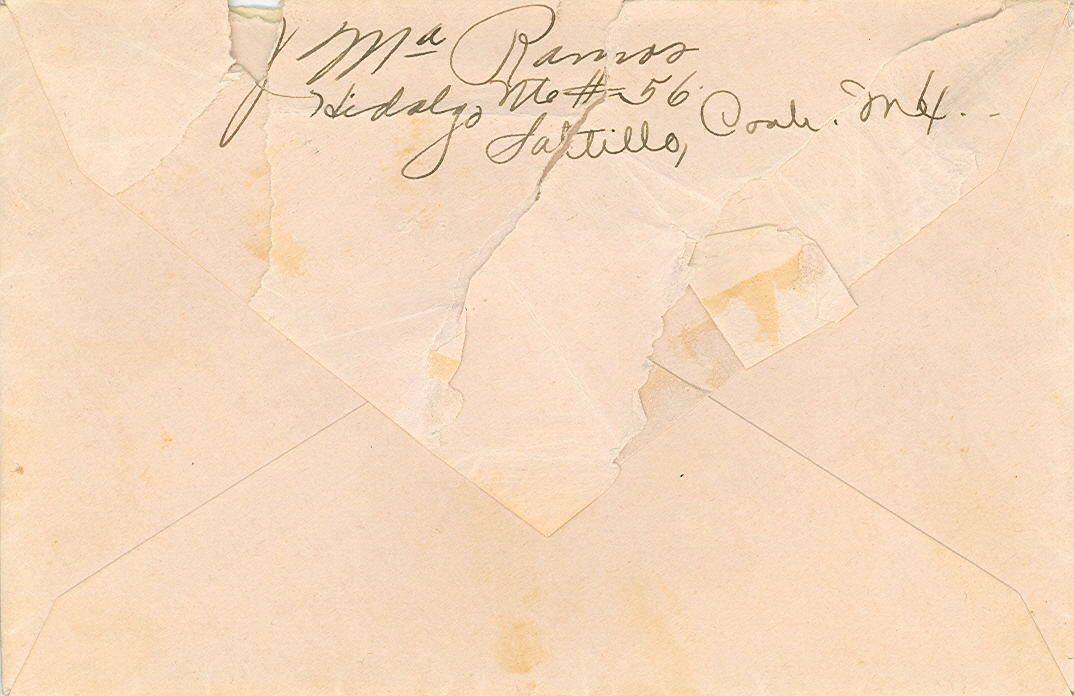 J Mª Ramos
Hidalgo Nte #=56.
Saltillo, Coah. Mex. -